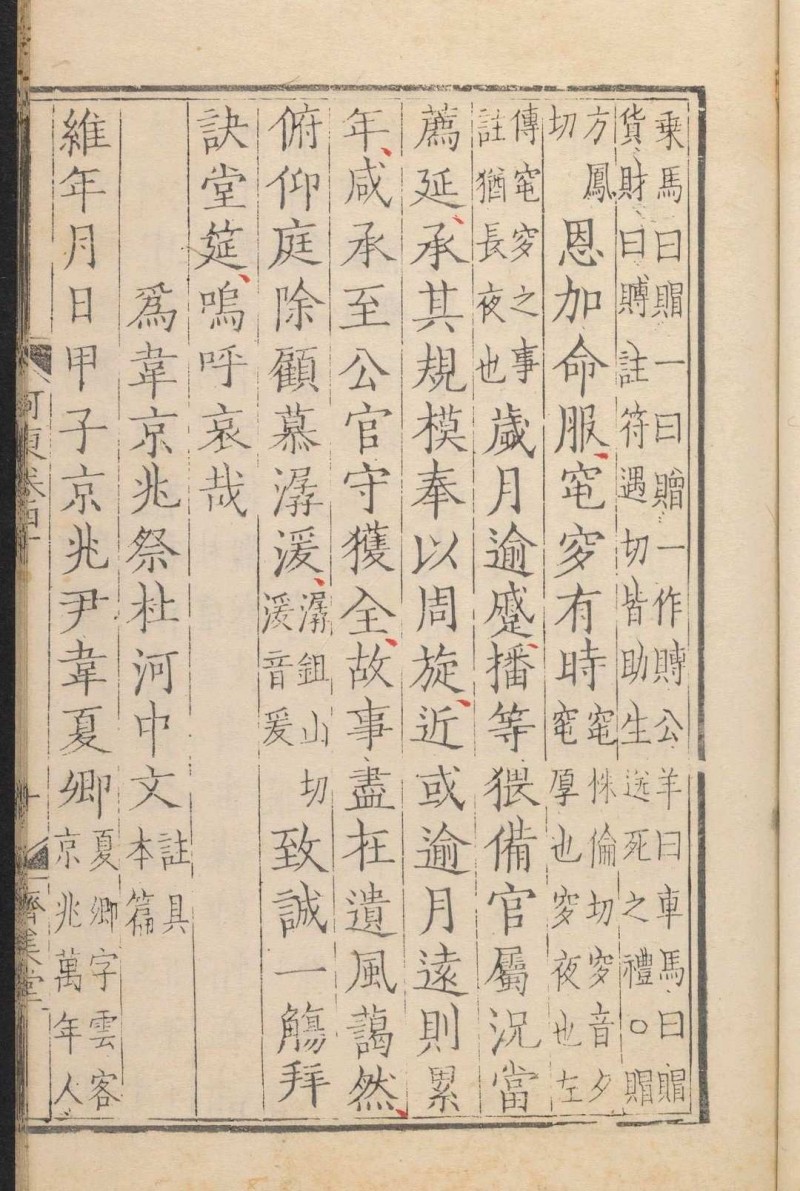 乗馬曰賵一曰贈一作賻公羊曰車馬曰賵
貨財曰賻註符遇切皆助生送死之禮○賵
方鳳切恩加命服窀穸有時窀株倫切穸音夕厚也穸夜也左
傳窀穸之事註猶長夜也歲月逾蹙播等猥備官屬況當
薦延承其規模奉以周旋近或逾月遠則累
年咸承至公官守獲全故事盡在遺風藹然
俯仰庭除顧慕潺湲潺鉏山切湲音爰致誠一觴拜
訣堂筵嗚呼哀哉
爲韋京兆祭杜河中文註具本篇
維年月日甲子京兆尹韋夏卿夏卿字雲客京兆萬年人
河東卷四十
十
濟美堂